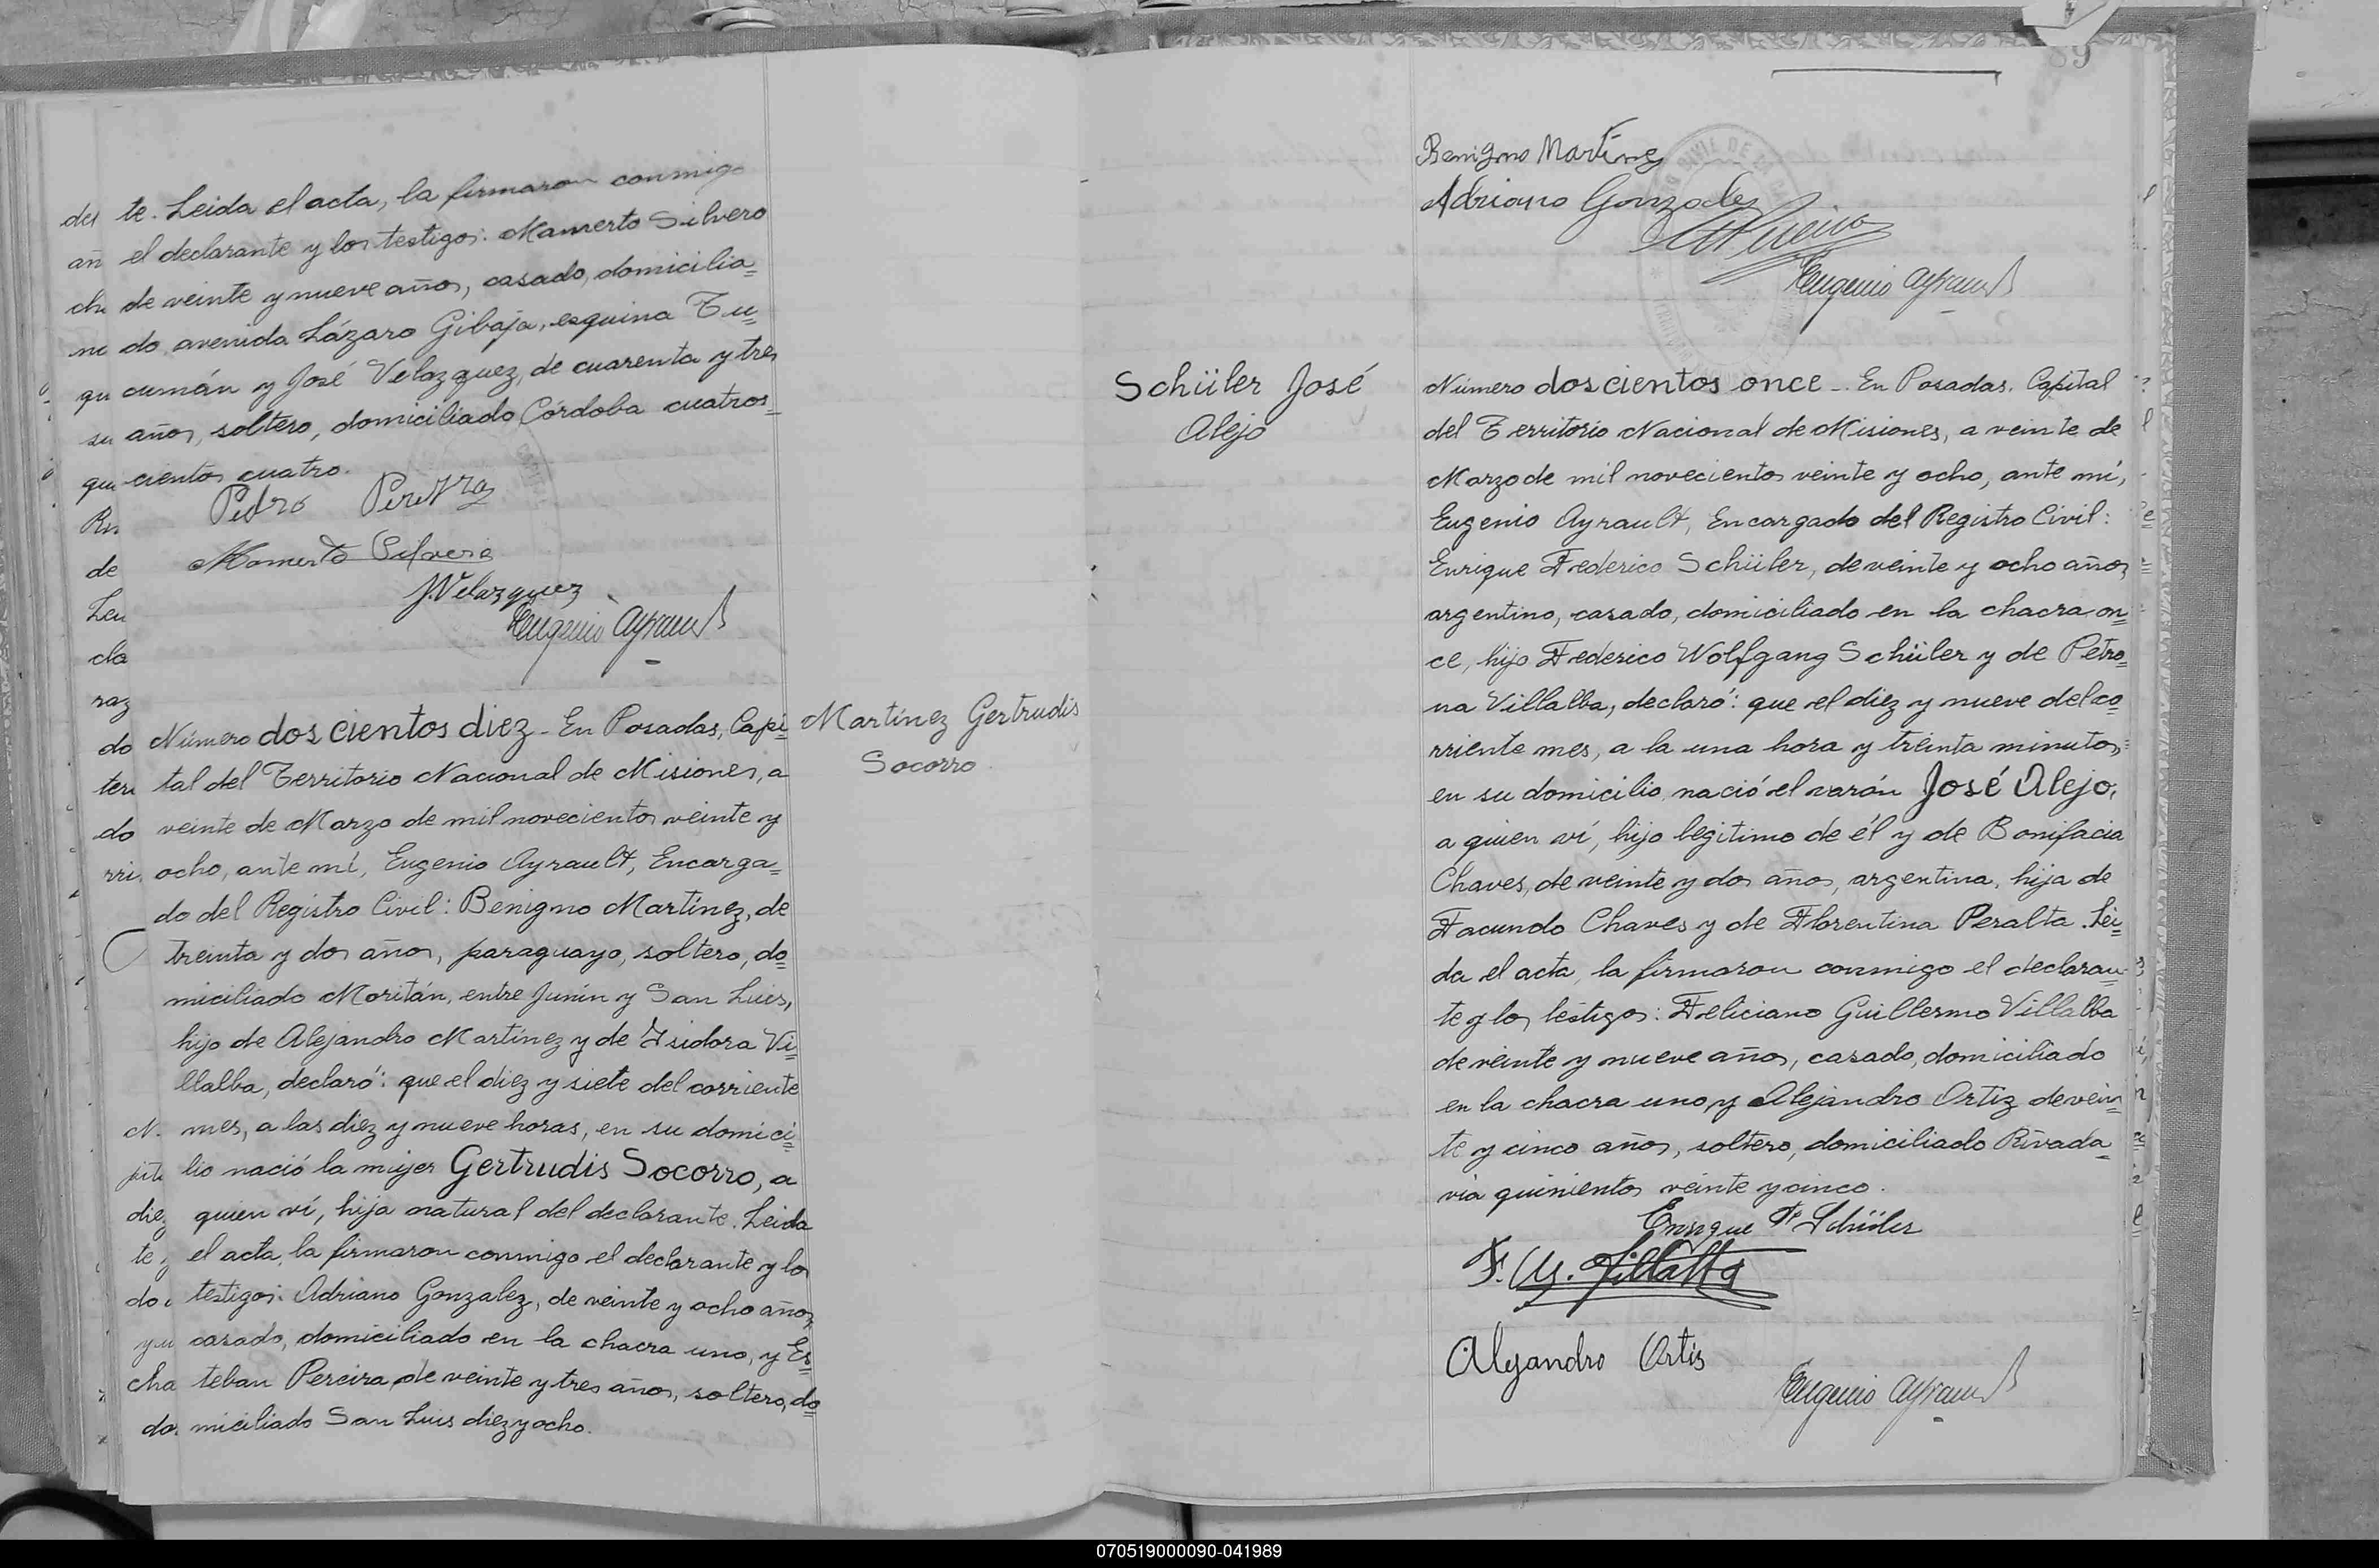 te. Leida el acta, la firmaron conmigo
el declarante y los testigos: Mamerto Silvero
de veinte y nueve años, casado, domicilia=
do avenida Lázaro Gibaja, esquina Tu=
cumán y José Velazquez, de cuarenta y tres
años, soltero, domiciliado Córdoba cuatros=
cientos cuatro.
Pedro
Mamerto Silvero
J. Velazquez
Eugenio Ayrault
Número doscientos diez - En Posadas, Capi=
tal del Territorio Nacional de Misiones, a
veinte de Marzo de mil novecientos veinte y
ocho, ante mí, Eugenio Ayrault, Encarga=
do del Registro Civil: Benigno Martínez, de
treinta y dos años, paraguayo, soltero, do=
miciliado Moritán, entre Junín y San Luis,
hijo de Alejandro Martínez y de Isidora Vi=
llalba, declaró: que el diez y siete del corriente
mes, a las diez y nueve horas, en su domici=
lio nació la mujer Gertrudis Socorro, a
quien ví, hija natural del declarante. Leida
el acta, la firmaron conmigo el declarante y los
testigos: Adriano Gonzalez, de veinte y ocho años,
casado, domiciliado en la chacra uno, y Es=
teban Pereira, de veinte y tres años, soltero, do=
miciliado San Luis diez y ocho.
Martínez Gertrudis
Socorro
89
Benigno Martínez
Adriano Gonzalez
Eugenio Ayrault
Schüler José
Alejo
Número doscientos once - En Posadas, Capital
del Territorio Nacional de Misiones, a veinte de
Marzo de mil novecientos veinte y ocho, ante mí,
Eugenio Ayrault, Encargado del Registro Civil:
Enrique Federico Schüler, de veinte y ocho años,
argentino, casado, domiciliado en la chacra on=
ce, hijo Federico Wolfgang Schüler y de Petro=
na Villalba, declaró: que el diez y nueve del co=
rriente mes, a la una hora y treinta minutos,
en su domicilio, nació el varón José Alejo,
a quien ví, hijo legitimo de él y de Bonifacia
Chaves, de veinte y dos años, argentina, hija de
Facundo Chaves y de Florentina Peralta. Lei=
da el acta, la firmaron conmigo el declaran-
te y los testigos: Feliciano Guillermo Villalba
de veinte y nueve años, casado, domiciliado
en la chacra uno y Alejandro Ortiz de vein=
te y cinco años, soltero, domiciliado Rivada=
via quinientos veinte y cinco.
Enrique F. Schüler
F. G. Villalba
Alejandro Ortis
Eugenio Ayrault
070519000090-041989